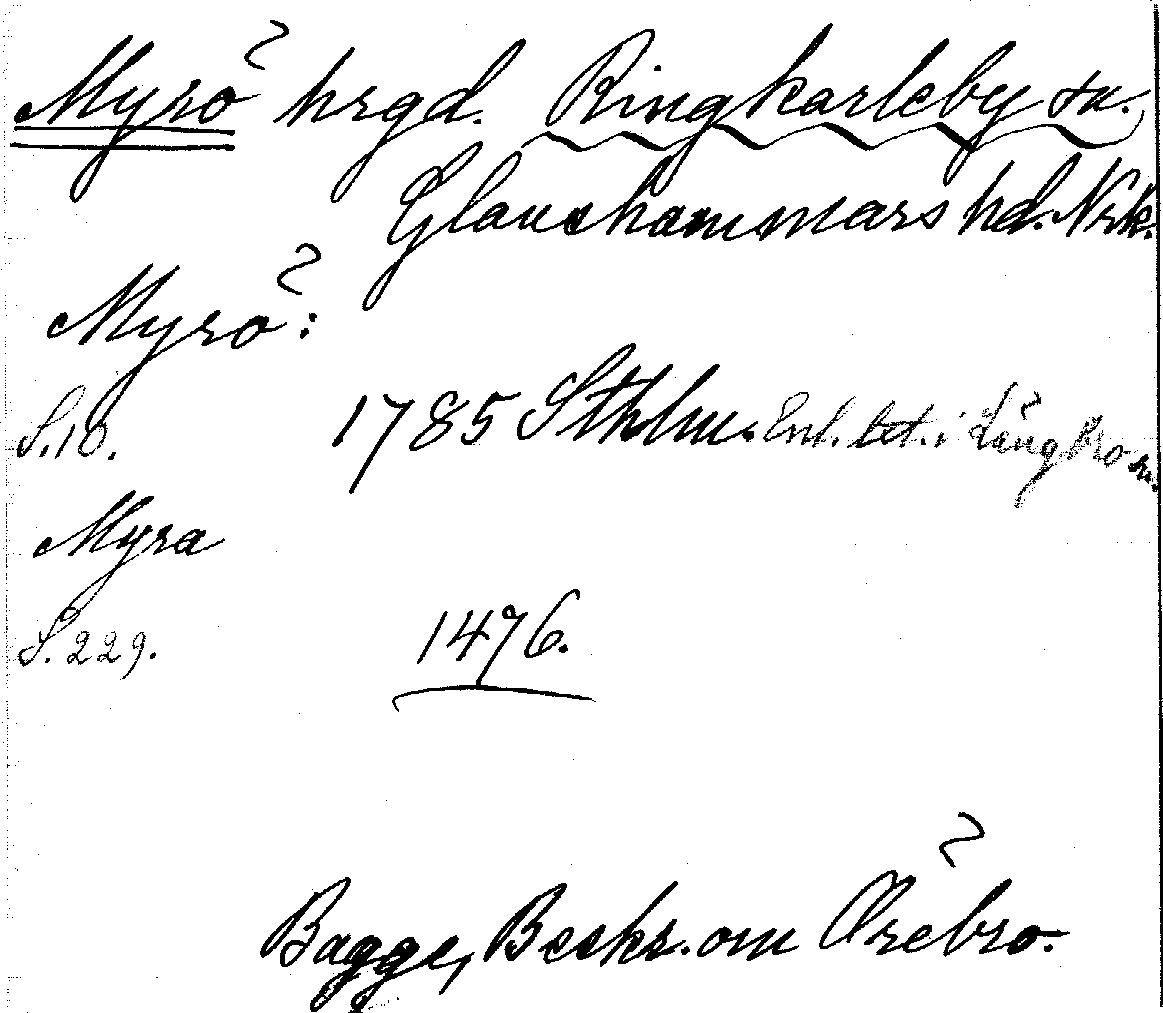 Myrö hrgd. Ringkarleby sn.
Glanshammars hd. Nrk.
Myrö:
S.10. 1785 Sthlm. Enl. bet. i Längbro sn.
Myra
S.229. 1476.
Bagge, Beskr. om Örebro.